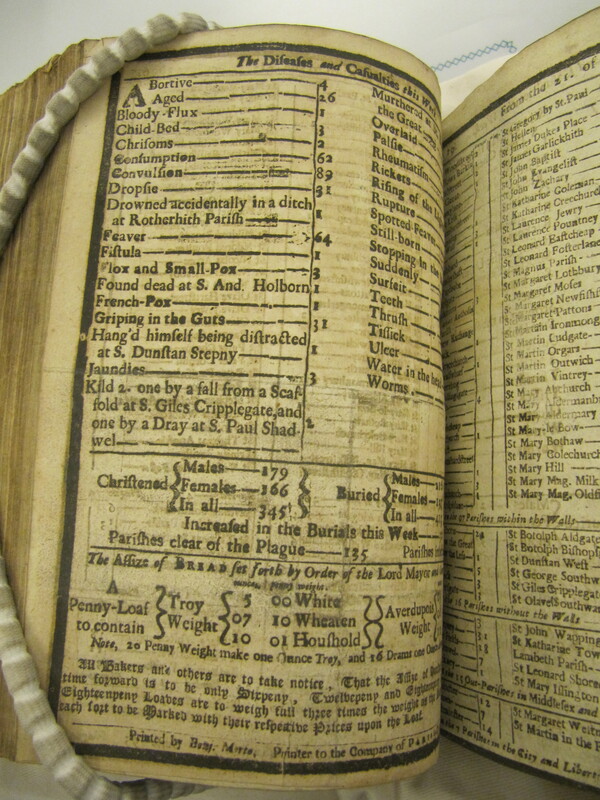 The Diseases and Casualties this
ABortive 4
Aged 26
Bloody-Flux 1
Child-Bed 3
Chrisoms 2
Consumption 62
Convulsion 89
Dropsie 31
Drowned accidentally in a ditch
at Rotherhith Parish 1
Feaver 64
Fistula 1
Flox and Small-Pox 3
Found dead at S. And. Holborn 1
French-Pox 1
Griping in the Guts 31
Hang'd himself being distracted
at S. Dunstan Stepny 1
Jaundies 3
Kild 2. one by a fall from a Scaf-
fold at S. Giles Cripplegate, and
one by a Dray at S. Paul Shad- 2
wel
Murthered
the Great
Overlaid
Palsie
Rheumatism
Rickets
Rising of the
Rupture
Spotted Feaver
Still-born
Stopping in the
Suddenly
Surfeit
Teeth
Thrush
Tissick
Ulcer
Water in the
Worms
Christened Males 179
Females 166
In all 345
Buried Males
Females
In all
Increased in the Burials this Week
Parishes clear of the Plague 135 Parishes
The Assize of BREAD set forth by Order of the Lord Mayor and
ounces, penny weight.
A
Penny-Loaf
to contain
Troy
Weight
5 00 White
07 10 Wheaten
10 01 Houshold
Averdupois
Weight
Note, 20 Penny Weight make one Ounce Troy, and 16 Drams one
All Bakers and others are to take notice, That the Assize of
time forward is to be only Sixpeny, Twelvepeny and Eighteen
Eighteenpeny Loaves are to weigh full three times the weight
each sort to be Marked with their respective Prizes upon the Loaf.
Printed by Benj. Motte, Printer to the Company of
From the 21. of
St Gregory by St. Paul
St Hellen
St James Dukes Place
St James Garlickhith
St John Baptist
St John Evangelist
St John Zachary
St Katharine Coleman
St Katharine Creechurch
St Laurence Jewry
St Laurence Pountney
St Leonard Eastcheap
St Leonard Fosterlane
St Magnus Parish
St Margaret Lothbury
St Margaret Moses
St Margaret Newfish
St Margaret Pattons
St Martin Ironmong
St Martin Ludgate
St Martin Orgars
St Martin Outwich
St Martin Vintrey
St Mary Abchurch
St Mary Aldermanb
St Mary Aldermary
St Mary le Bow
St Mary Bothaw
St Mary Colechurch
St Mary Hill
St Mary Mag. Milk
St Mary Mag. Oldfi
Parishes within the Walls
St Botolph Aldgate
St Botolph Bishops
St Dunstan West
St George Southw
St Giles Cripplegate
St Olave Southwark
16 Parishes without the Walls
St John Wapping
St Katharine Tow
Lambeth Parish
St Leonard Shore
St Mary Islington
Out-Parishes in Middlesex and
St Margaret Westm
St Martin in the F
Parishes in the City and Libert